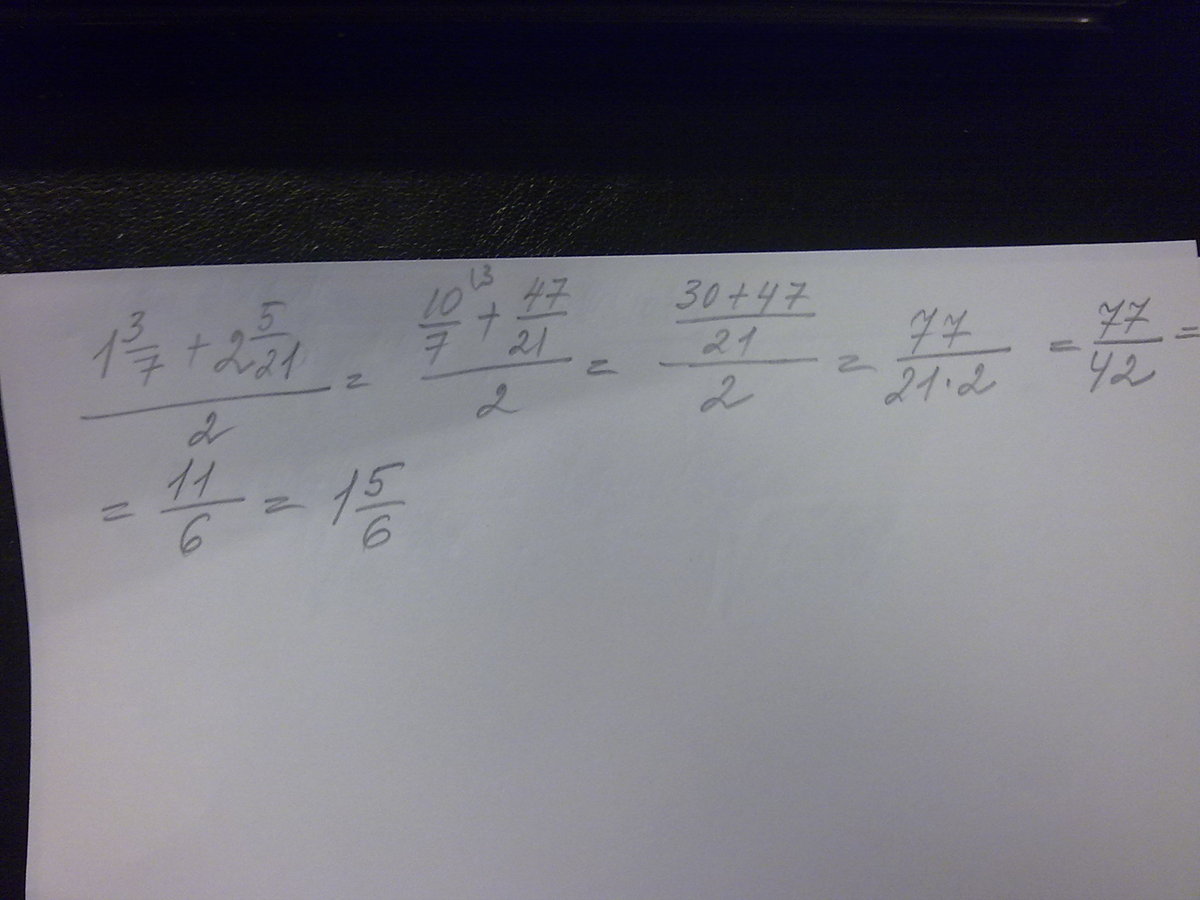 (1 3/7 + 2 5/21)/2 = (10/7 \3 + 47/21)/2 = ((30+47)/21)/2 = 77/(21·2) = 77/42 =
= 11/6 = 1 5/6